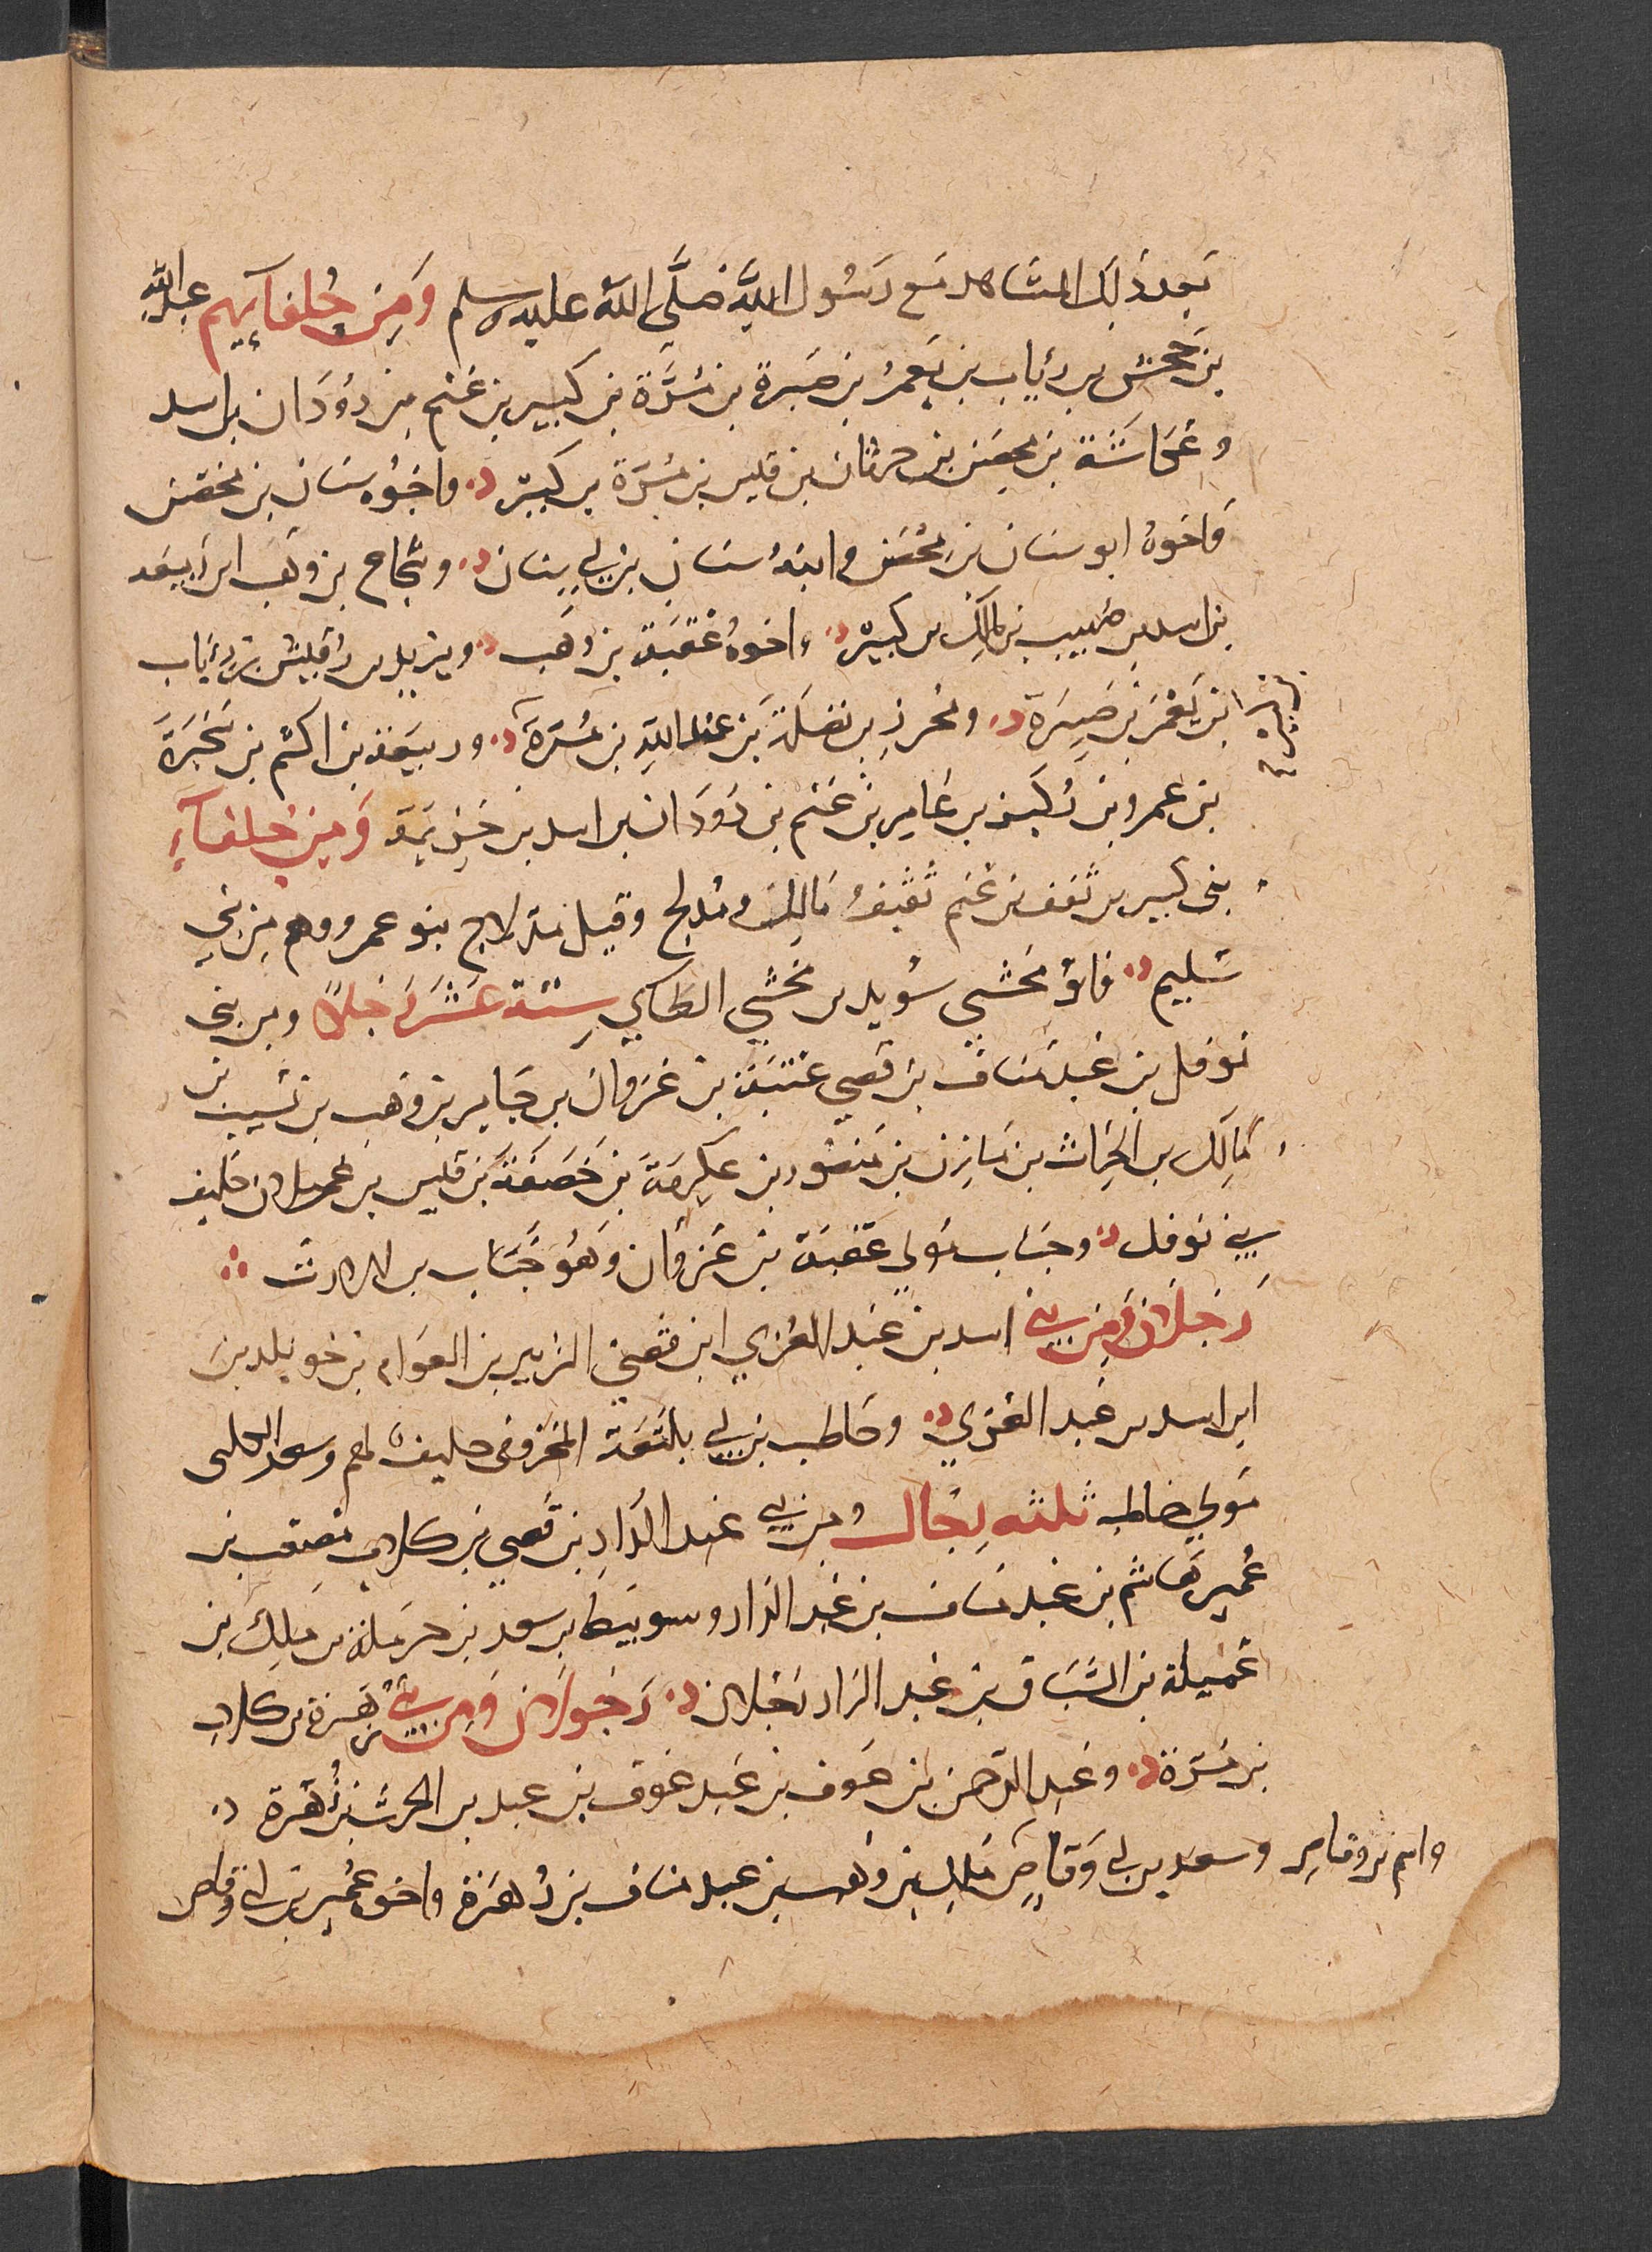 بَعدَ ذَلِكَ المشَاهد مَع رَسُول اللهِ صَلَّى اللهُ عليه وسلم وَمِن حُلفآئِهم عبد اللهِ
بن جحش بن رئاب بن يَعمُر بن صَبرة بن مُرَّة بن كبير بن غنم بن دُوَدَان بن اسد
وعكاشَة بن محصَن بن حرثان بن قيس بن مُرَّة بن كبير واخوُه سنان بن محصن
وَاخوهُ ابو سنان بن محْصَن وابنهُ سنان بن ابي سِنان وشجاع بن وَهَب ابن رَبيعَة
بن اسد بن صُهيب بن مَالِك بن كبير واخوهُ عُقبَة بن وَهَب ويزيد بن رُقيش بن رئاب
ابن يَعْمَر بن صَبِرَة ومُحرِز بن نضلَة بن عبد اللهِ بن مُرَّة وربيعَة بن اكثم بن سَخبَرَة
بن عمرو بن لكَيز بن عَامِر بن غنم بن دُودَان بن اسد بن خزيمَة وَمِن حُلفآءِ
بنى كبير بن ثقف بن عمرو ثقفُ مَالِك ومُدلج وقيل مدلاج بنو عمرو وهم مِن بَني
سُليم وابو مخشى سُويد بن مخشي الطائي سِتة عَشَر رَجُلاً ومن بنى
نوفل بن عبد مناف بن قصَي عتبة بن غزوان بن جَابر بن وَهَب بن نسيب بن
مَالِك بن الحَرث بن مَازِن بن مَنصُور بن عِكرمَةَ بن خَصَفَة بن قيس بن عيلان حليف
بني نوفل وخبَاب مَولى عقبَة بن غزوَان وَهُو خَبَّاب بن الارث
رَجُلاَن وَمِن بَني اسد بن عَبد العُزى ابن قصَي الزبير بن العوَام بن خويلد بن
ابن اسد بن عَبد العُزى وحَاطب بن ابي بلتَعَة اللخمى حليف لهم وسعد الكلبى
مَولى حَاطب ثلثه رِجَال ومن بَني عَبد الدَار بن قصَي بن كلاب مُصعَب بن
عُمير بن هَاشم بن عَبد مناف بن عَبد الدَار وسويبَط بن سعد بن حرملَة بن مَالِك بن
عُميلة بن السَّبَاق بن عَبد الدَار رَجُلان رَجُلاَن وَمِن بَني زُهرَة بن كلاب
بن مُرّة وعَبد الرَحمن بن عَوف بن عَبد عَوف بن عبد بن الحَرث بن زُهرَة
واسم ابي وقاص وسعد بن ابي وَقَاصٍ مَالِك بن وُهَيب بن عبد مناف بن زُهرَة واخوه عُمير بن ابي وقاص